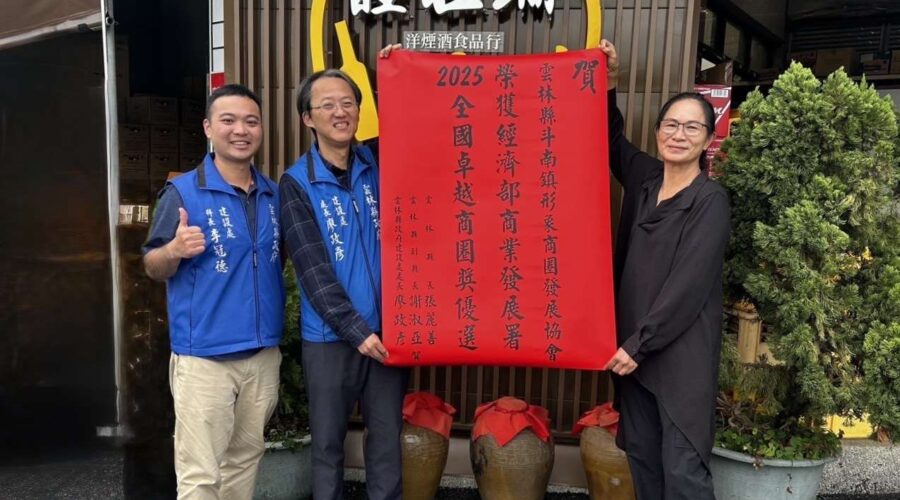 洋煙酒食品行
賀
雲林縣斗南鎮形象商圈發展協會
榮獲經濟部商業發展署
2025全國卓越商圈獎優選
雲林縣長張麗善
雲林縣副縣長謝淑亞賀
雲林縣政府建設處處長廖政彥
建設處
科長李冠德
雲林縣政府
建設處
處長廖政彥